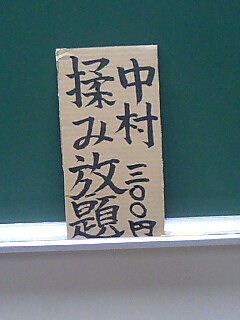 中村 三〇〇円
揉み放題